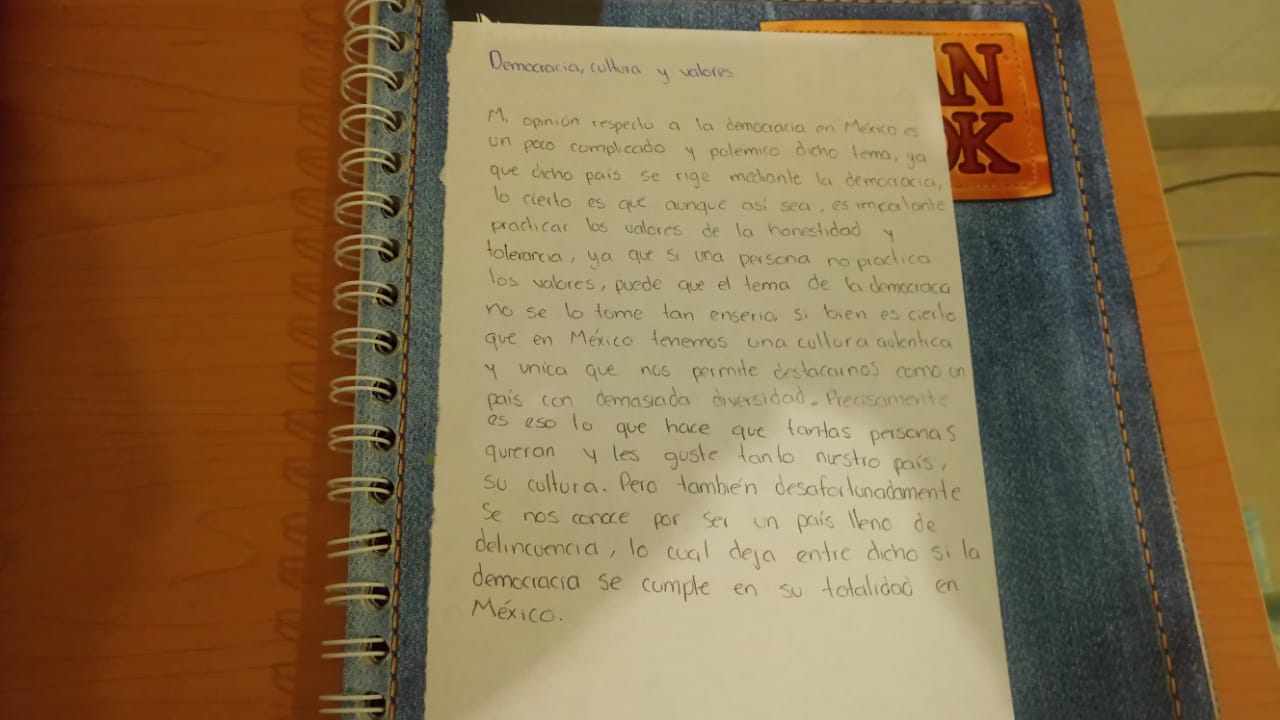 Democracia, cultura y valores
Mi opinión respecto a la democracia en México es
un poco complicado y polemico dicho tema, ya
que dicho país se rige mediante la democracia,
lo cierto es que aunque así sea, es importante
practicar los valores de la honestidad y
tolerancia, ya que si una persona no practica
los valores, puede que el tema de la democraca
no se lo tome tan enserio, si bien es cierto
que en México tenemos una cultura autentica
y unica que nos permite destacarnos como un
país con demasiada diversidad. Precisamente
es eso lo que hace que tantas personas
quieran y les guste tanto nuestro país,
su cultura. Pero también desafortunadamente
se nos conoce por ser un país lleno de
delincuencia, lo cual deja entre dicho si la
democracia se cumple en su totalidad en
México.
AN
OK